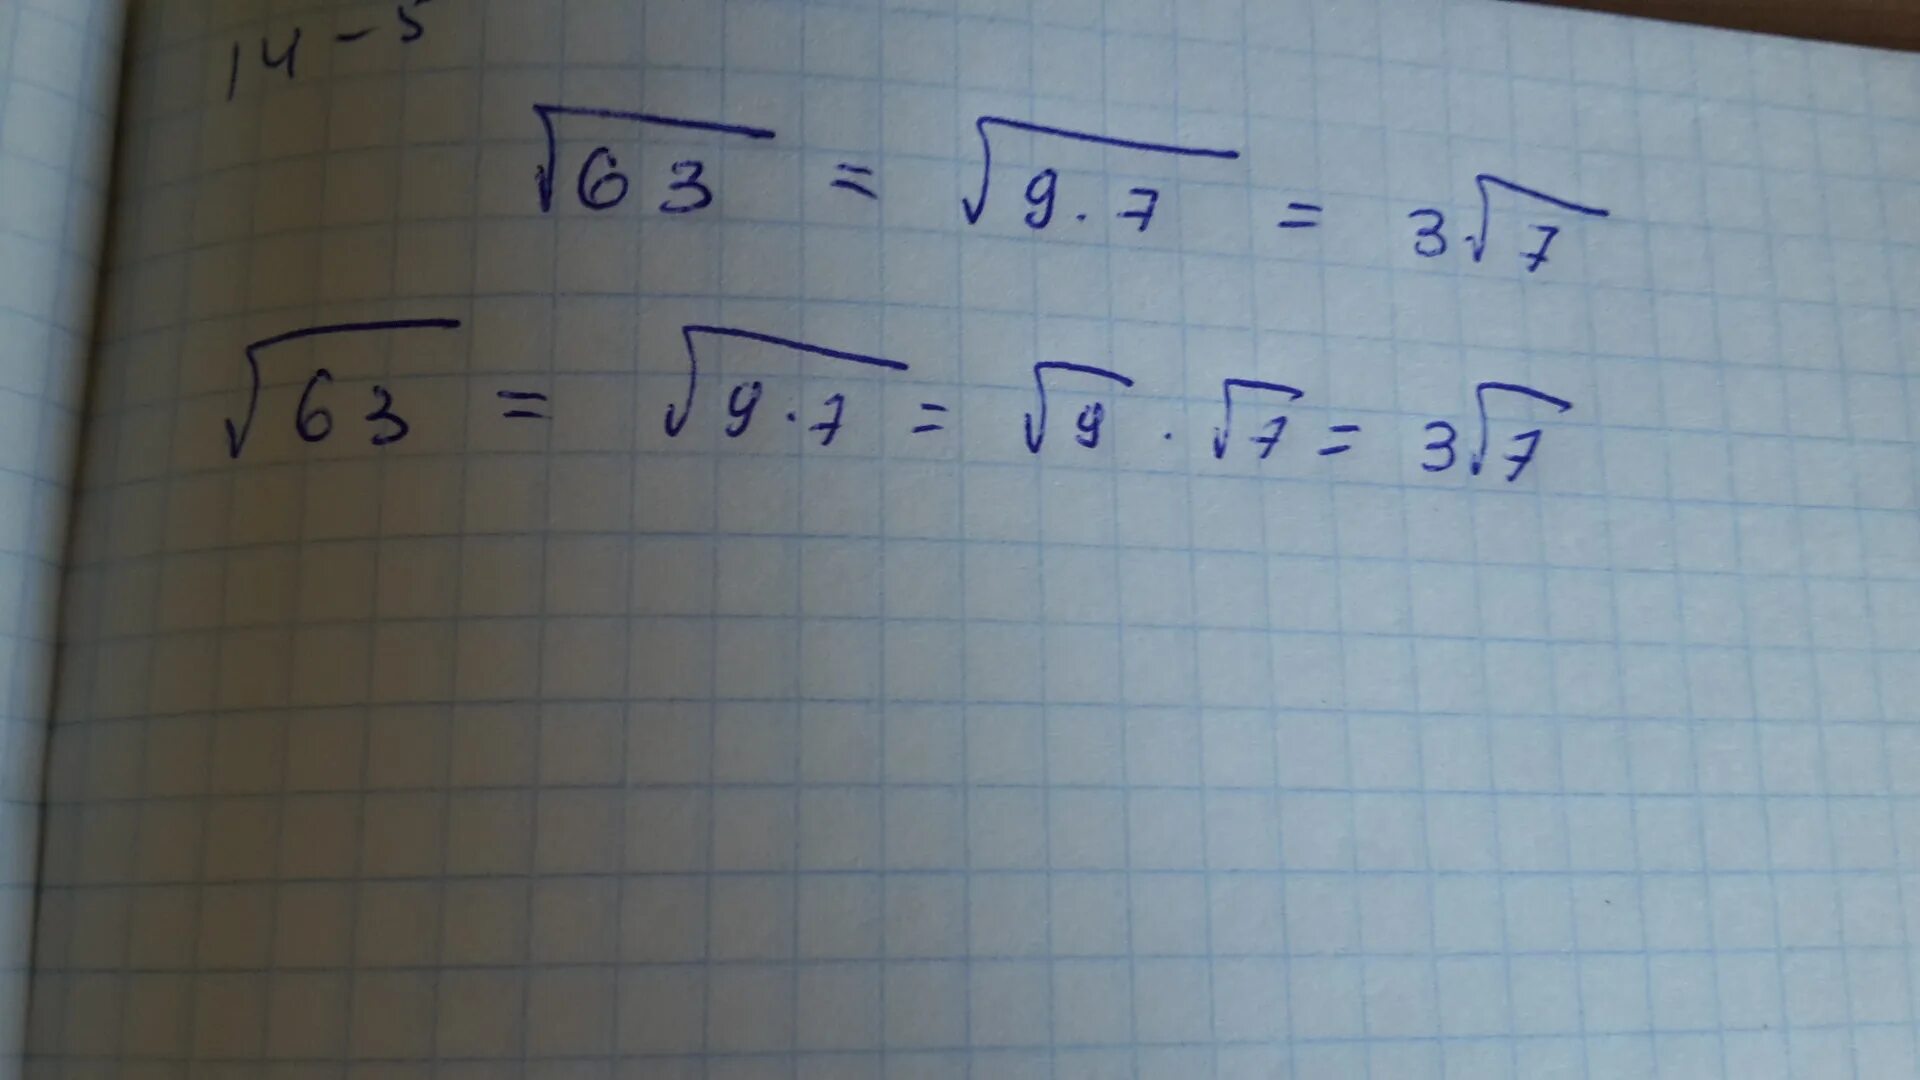 14 - 5
√63 = √9·7 = 3√7
√63 = √9·7 = √9 · √7 = 3√7